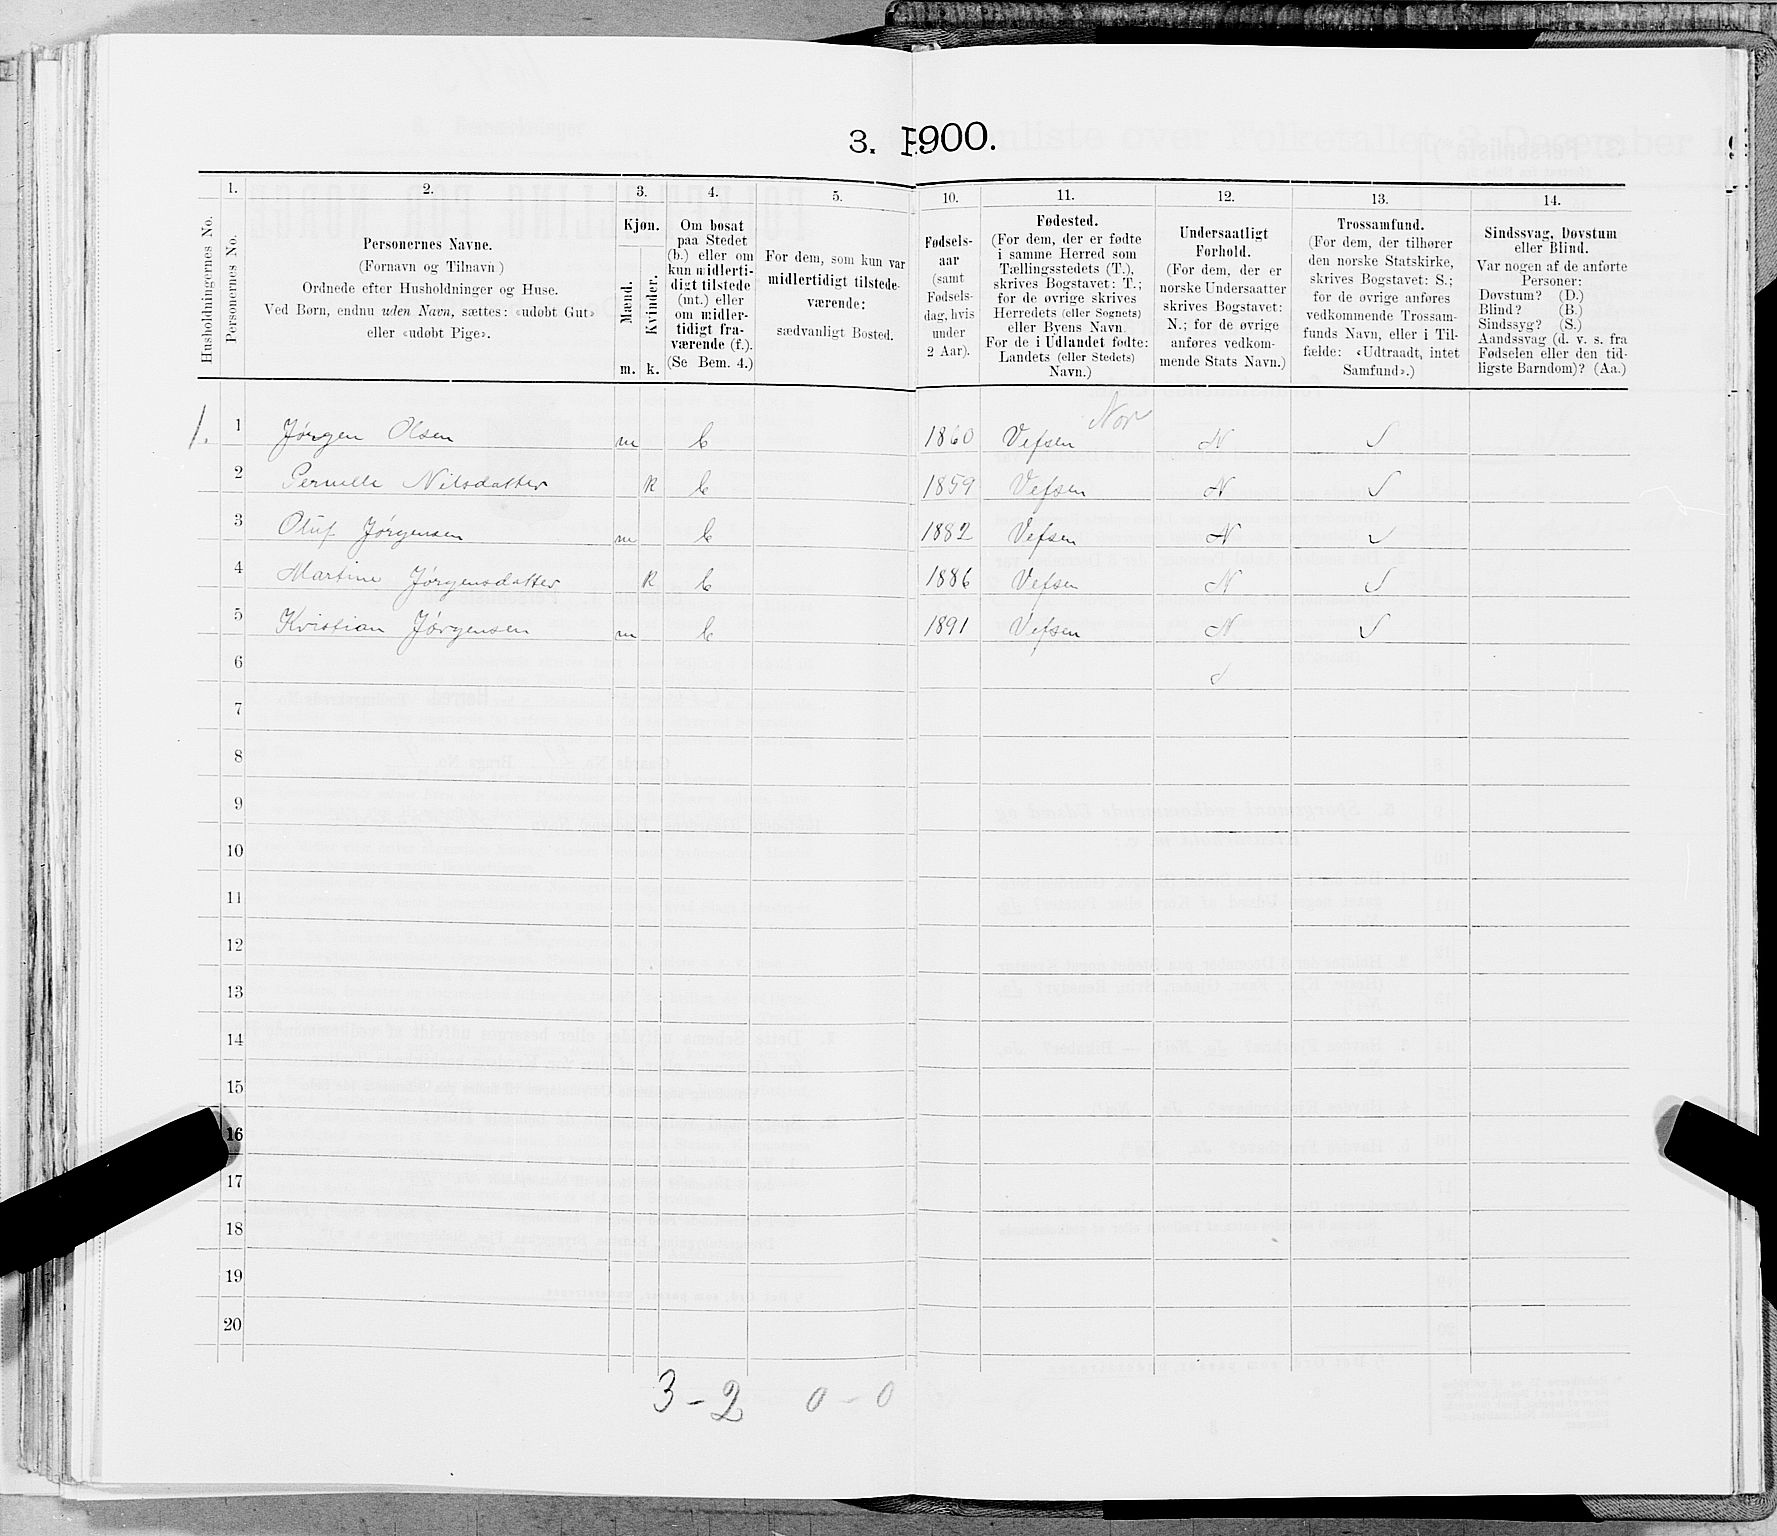 3. 1900.
1. 2. 3. 4. 5. 10. 11. 12. 13. 14.
Husholdningernes No.
Personernes No.
Personernes Navne.
(Fornavn og Tilnavn)
Ordnede efter Husholdninger og Huse.
Ved Børn, endnu uden Navn, sættes: «udøbt Gut»
eller «udøbt Pige».
Kjøn.
Mænd.
Kvinder.
m. k.
Om bosat
paa Stedet
(b.) eller om
kun midlerti-
digt tilstede
(mt.) eller
om midler-
tidigt fra-
værende (f.).
(Se Bem. 4.)
For dem, som kun var
midlertidigt tilstede-
værende:
sædvanligt Bosted.
Fødsels-
aar
(samt
Fødsels-
dag, hvis
under
2 Aar).
Fødested.
(For dem, der er fødte
i samme Herred som
Tællingsstedets (T.),
skrives Bogstavet: T.;
for de øvrige skrives
Herredets (eller Sognets)
eller Byens Navn.
For de i Udlandet fødte:
Landets (eller Stedets)
Navn.)
Undersaatligt
Forhold.
(For dem, der er
norske Undersaatter
skrives Bogstavet:
N.; for de øvrige
anføres vedkom-
mende Stats Navn.)
Trossamfund.
(For dem, der tilhører
den norske Statskirke,
skrives Bogstavet: S.;
for de øvrige anføres
vedkommende Trossam-
funds Navn, eller i Til-
fælde: «Udtraadt, intet
Samfund».)
Sindssvag, Døvstum
eller Blind.
Var nogen af de anførte
Personer:
Døvstum? (D.)
Blind? (B.)
Sindssyg? (S.)
Aandssvag (d. v. s. fra
Fødselen eller den tid-
ligste Barndom)? (Aa.)
Nor
1. 1 Jørgen Olsen m b 1860 Vefsen N S
2 Pernille Nilsdatter k b 1859 Vefsen N S
3 Oluf Jørgensen m b 1882 Vefsen N S
4 Martine Jørgensdatter k b 1886 Vefsen N S
5 Kristian Jørgensen m b 1891 Vefsen N S
6
7
8
9
10
11
12
13
14
15
16
17
18
19
20
3 - 2 0 - 0